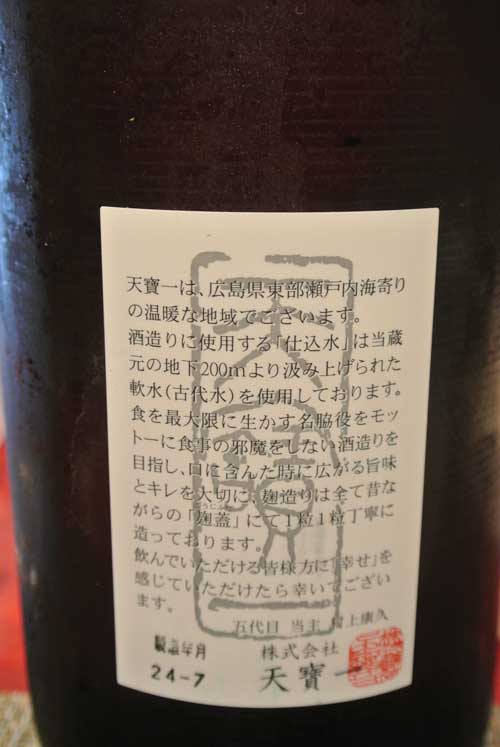 天寶一は、広島県東部瀬戸内海寄り
の温暖な地域でございます。
酒造りに使用する「仕込水」は当蔵
元の地下200mより汲み上げられた
軟水(古代水)を使用しております。
食を最大限に生かす名脇役をモッ
トーに食事の邪魔をしない酒造りを
目指し、口に含んだ時に広がる旨味
とキレを大切に、麹造りは全て昔な
がらの「麹蓋」にて1粒1粒丁寧に
造っております。
飲んでいただける皆様方に「幸せ」を
感じていただけたら幸いでござい
ます。
五代目 当主 村上康久
年月 株式会社
24-7 天寶一